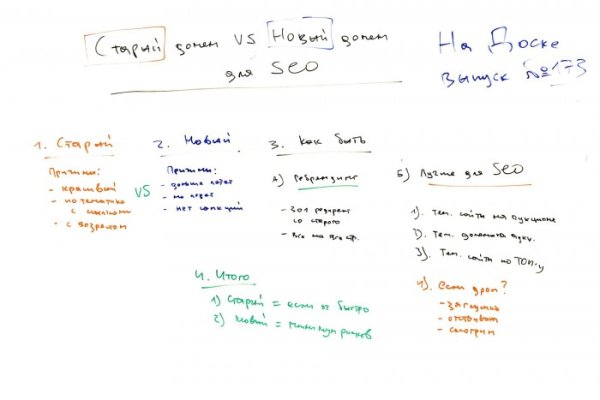 Старый домен VS Новый домен
для SEO
На Доске
выпуск №173
1. Старый
Причины:
- красивый
- по тематике
с ссылками
- с возрастом
VS
2. Новый
Причины:
- дольше
- нет санкций
3. Как быть
А) Ребрендинг
- 301 редирект
со старого
- все на все стр.
Б) Лучше для SEO
1). Тем. сайты на аукционе
2). Тем. домены аукц.
3). Тем. сайты по ТОП-у
4). Если дроп?
- заглушка
- отстоять
- смотрим
4. Итого
1) Старый = если оч быстро
2) Новый = минимум рисков